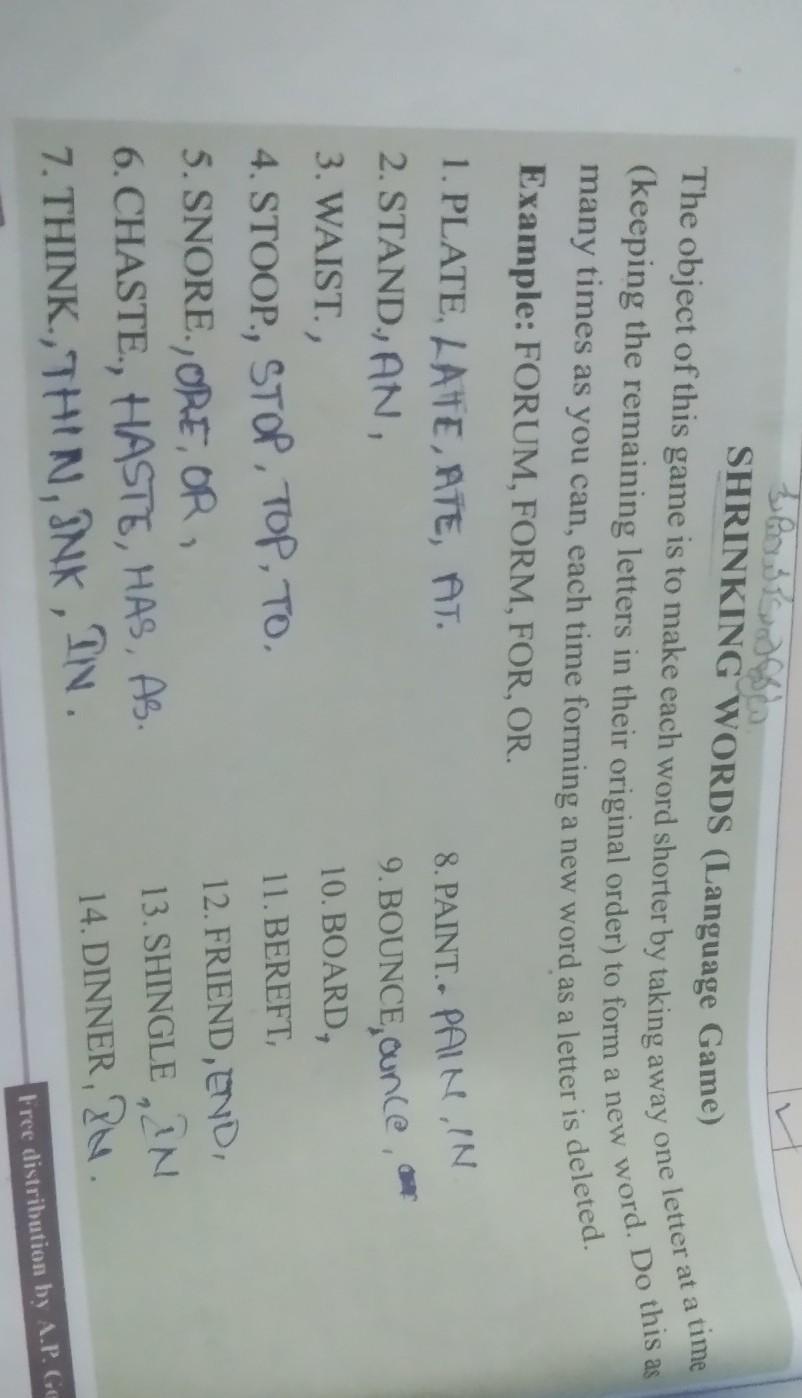 SHRINKING WORDS (Language Game)
The object of this game is to make each word shorter by taking away one letter at a time
(keeping the remaining letters in their original order) to form a new word. Do this as
many times as you can, each time forming a new word as a letter is deleted.
Example: FORUM, FORM, FOR, OR.
1. PLATE, LATE, ATE, AT.
2. STAND., AN,
3. WAIST.,
4. STOOP., STOP, TOP, TO.
5. SNORE., ORE, OR,
6. CHASTE., HASTE, HAS, AS.
7. THINK., THIN, INK, IN.
8. PAINT. PAIN, IN
9. BOUNCE, ounce,
10. BOARD,
11. BEREFT,
12. FRIEND, END,
13. SHINGLE, IN
14. DINNER, IN.
Free distribution by A.P.